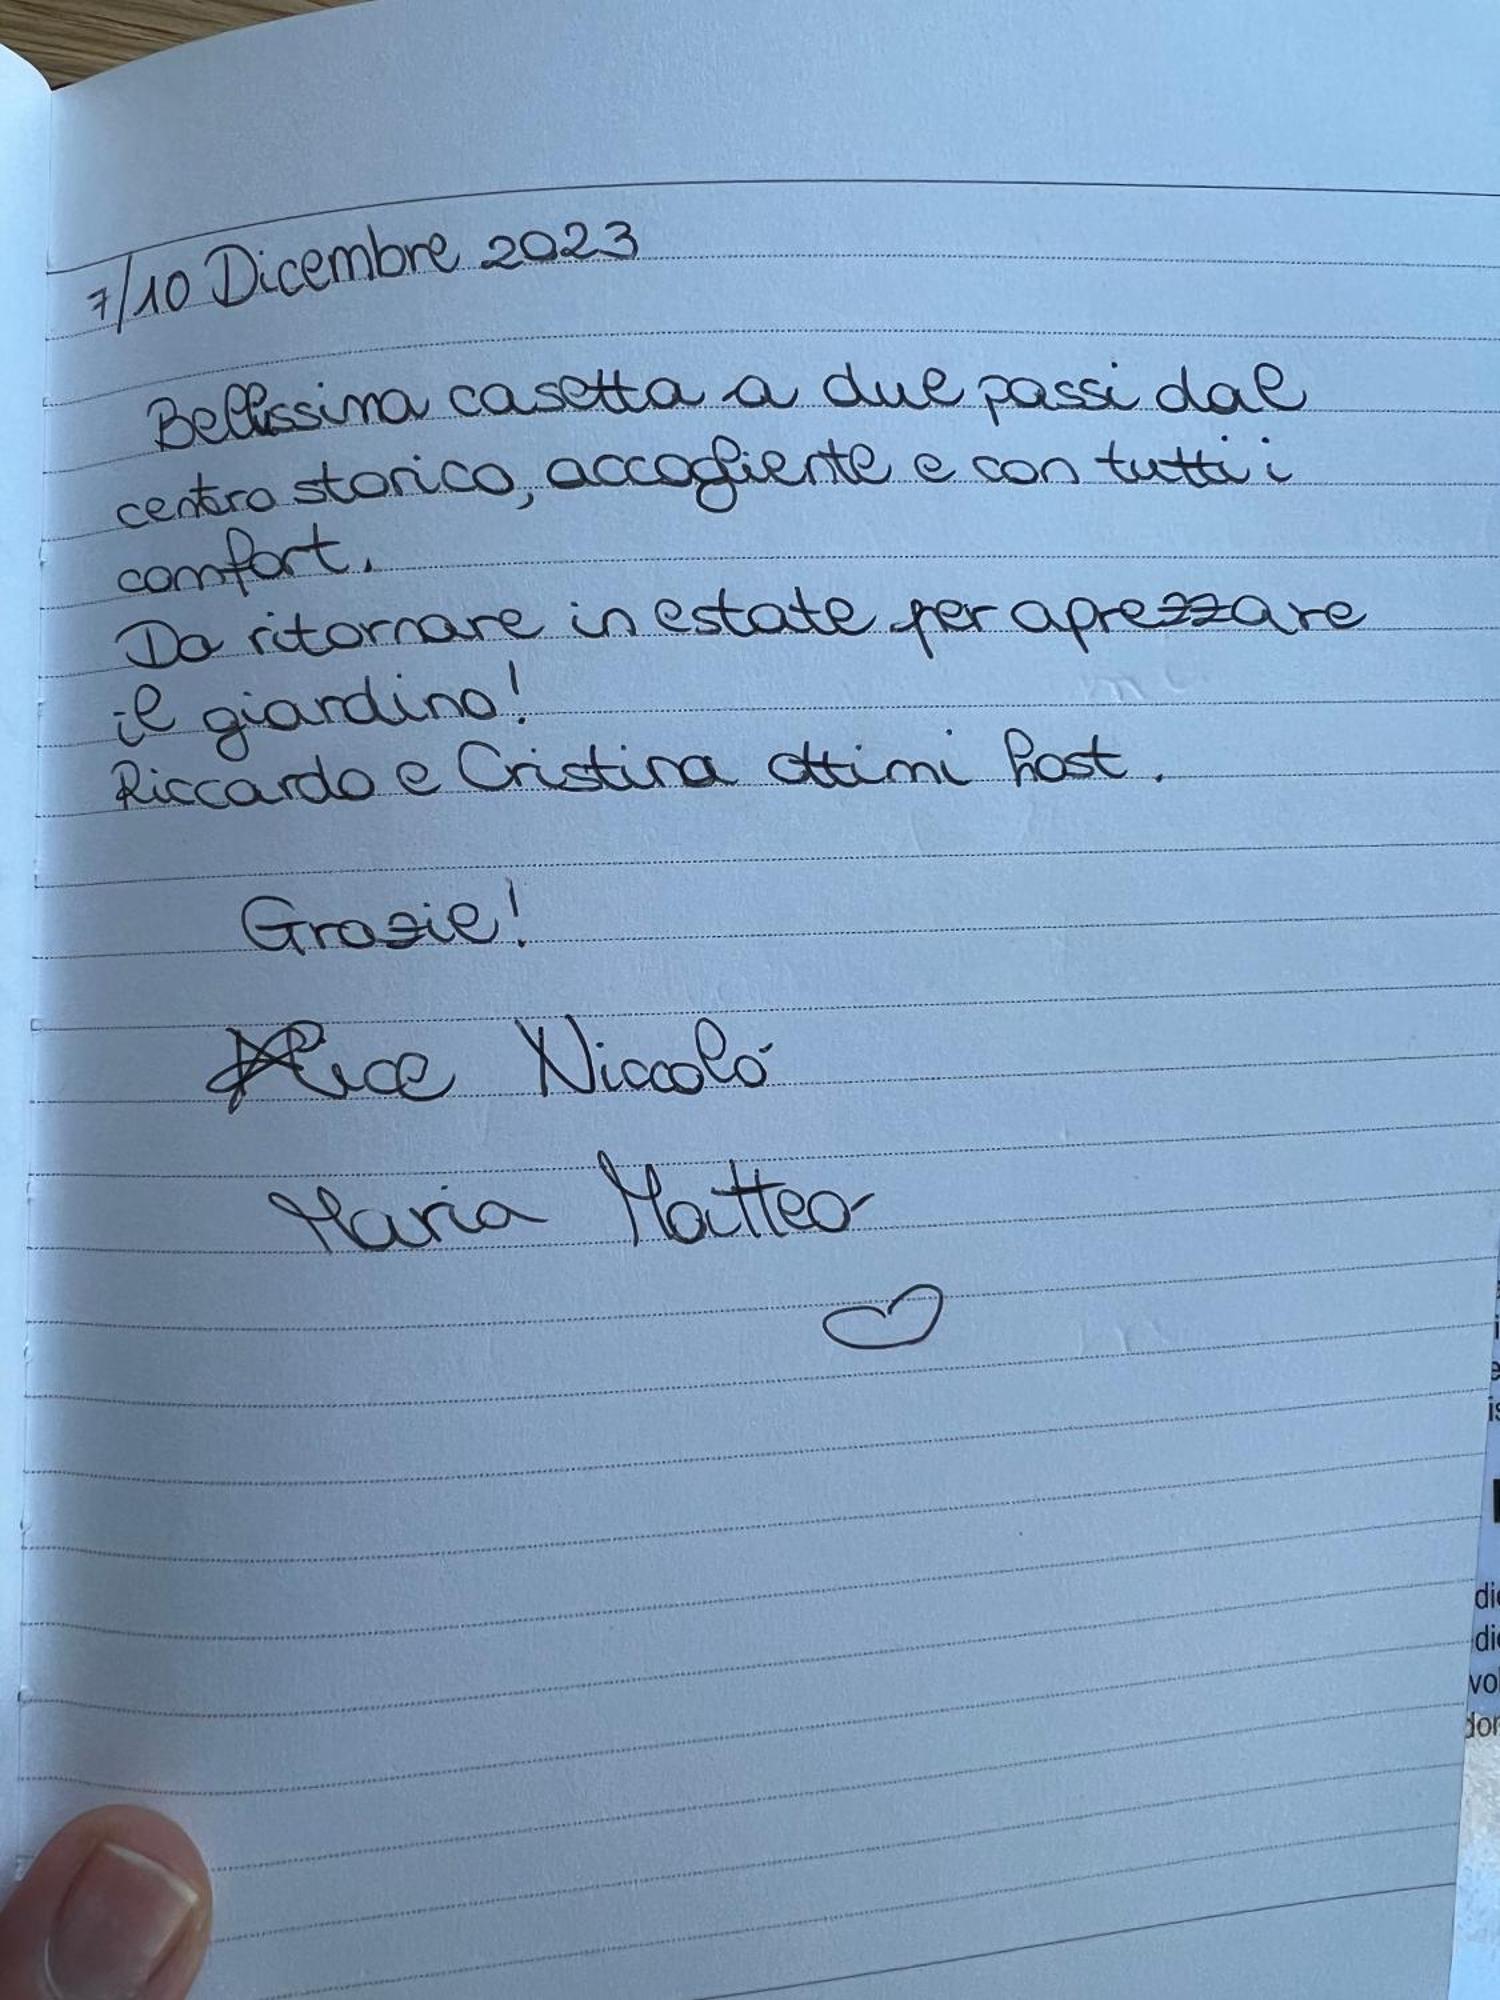 7/10 Dicembre 2023
Bellissima casetta a due passi dal
centro storico, accogliente e con tutti i
comfort.
Da ritornare in estate per aprezzare
il giardino!
Riccardo e Cristina ottimi host.
Grazie!
Alice Niccoló
Maria Matteo